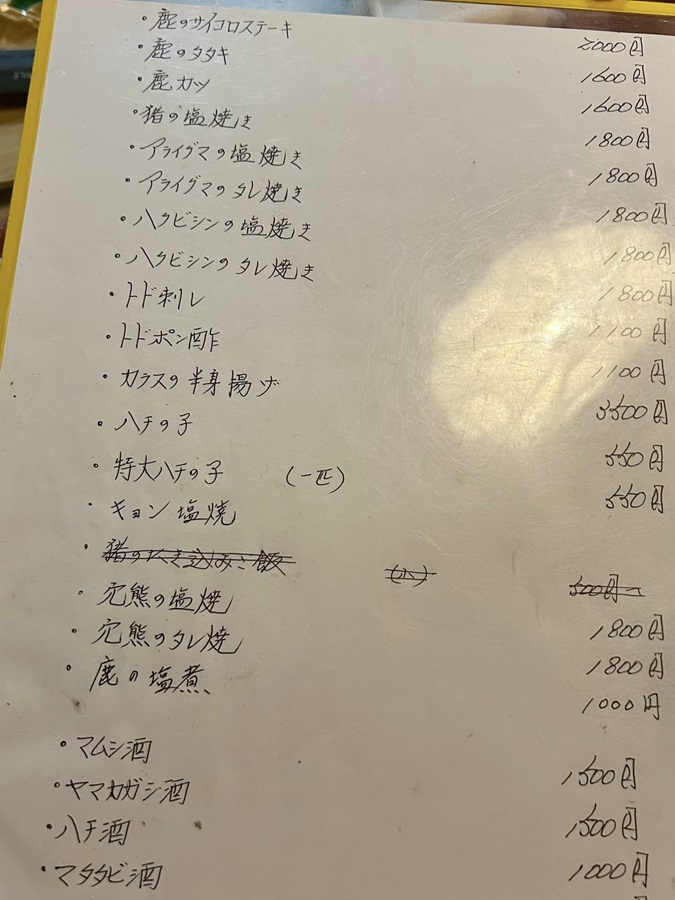 ・鹿のサイコロステーキ 2000円
・鹿のタタキ 1600円
・鹿カツ 1600円
・猪の塩焼き 1800円
・アライグマの塩焼き 1800円
・アライグマのタレ焼き 1800円
・ハクビシンの塩焼き 1800円
・ハクビシンのタレ焼き 1800円
・トド刺し 1100円
・トドポン酢 1100円
・カラスの半身揚げ 3500円
・ハチの子 550円
・特大ハチの子 (一匹) 550円
・キョン塩焼
・猪のたき込みご飯 (小) 500円
・穴熊の塩焼 1800円
・穴熊のタレ焼 1800円
・鹿の塩煮 1000円
・マムシ酒 1500円
・ヤマカガシ酒 1500円
・ハチ酒 1000円
・マタタビ酒